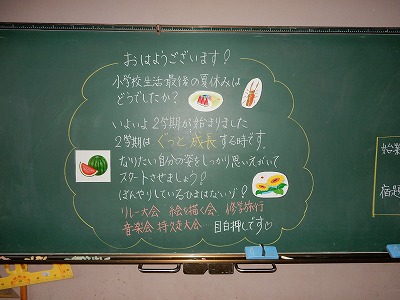 おはようございます!
小学校生活最後の夏休みは
どうでしたか?
いよいよ2学期が始まりました
2学期は ぐっと成長する時です。
なりたい自分の姿をしっかり思いえがいて
スタートさせましょう!
ぼんやりしているひまはないゾ!
リレー大会 絵を描く会 修学旅行
音楽会 持久走大会…目白押しです♡
始業
宿題